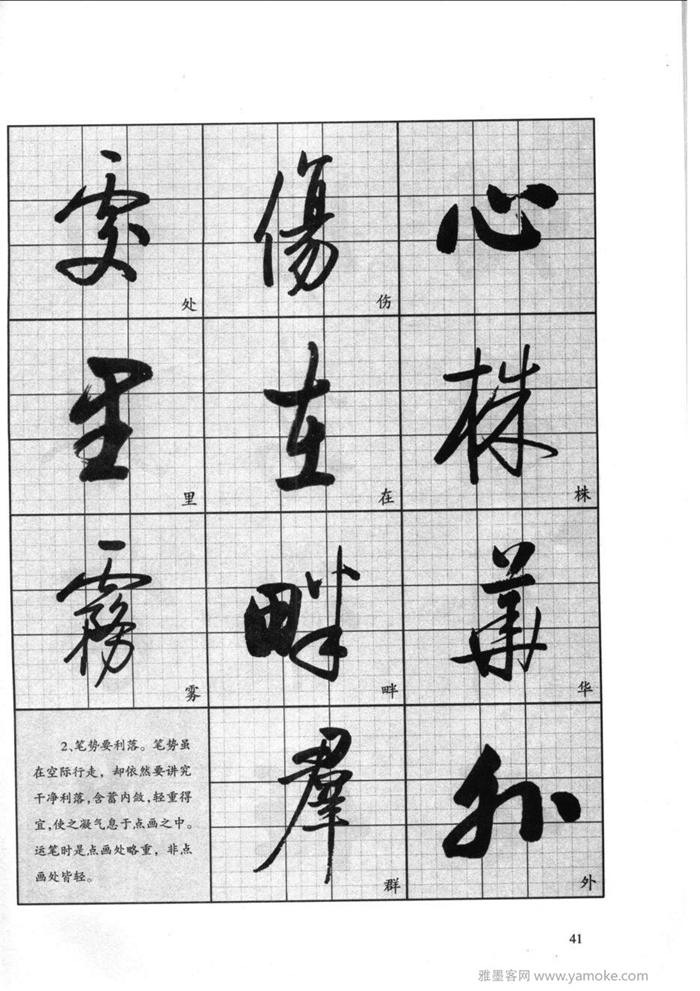 處 傷 心
处 伤
里 在 株
里 在 株
霧 畔 華
雾 畔 华
2、笔势要利落。笔势虽
在空际行走，却依然要讲究
干净利落，含蓄内敛，轻重得
宜，使之凝气息于点画之中。
运笔时是点画处略重，非点
画处皆轻。
羣 外
群 外
41
雅墨客网 www.yamoke.com